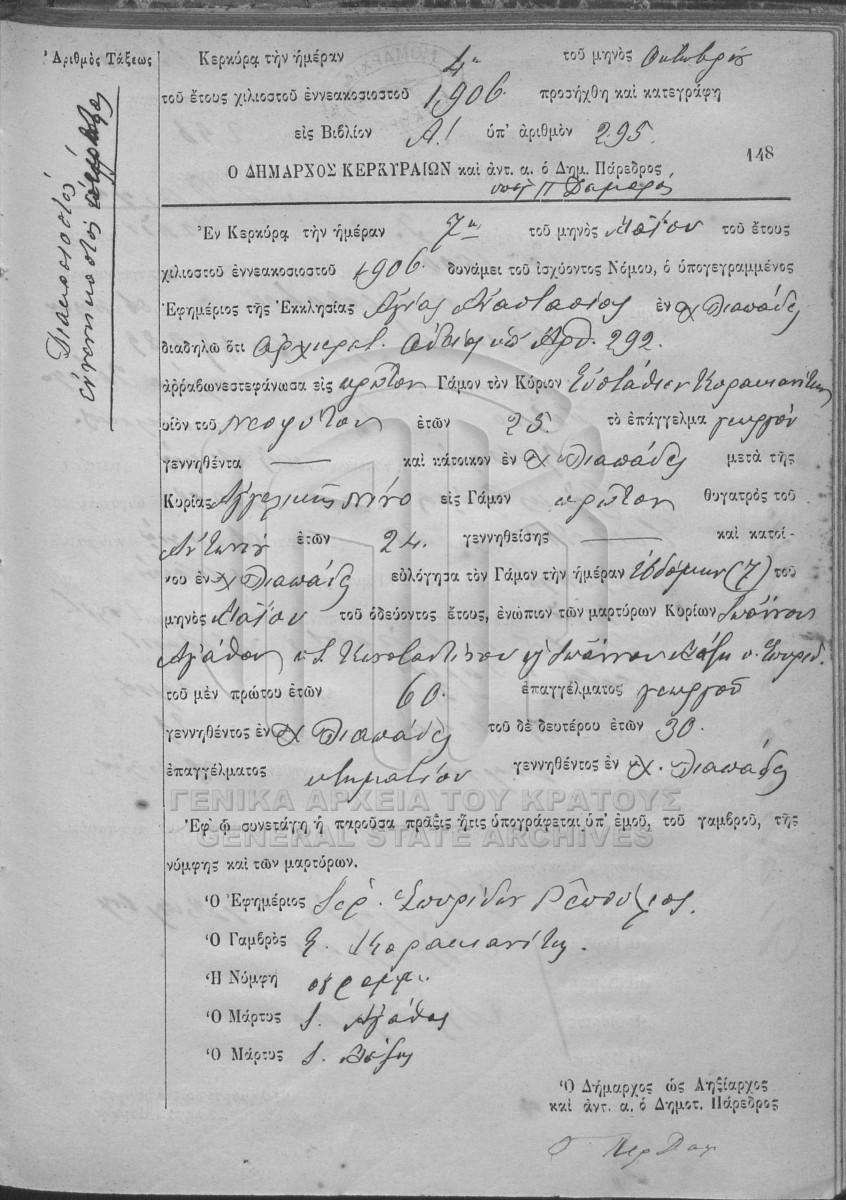 Ἀριθμὸς Τάξεως
Διακοσιοστὸς
ἐνενηκοστὸς
Κερκύρα τὴν ἡμέραν 4η τοῦ μηνὸς Ὀκτωβρίου
τοῦ ἔτους χιλιοστοῦ ἐννεακοσιοστοῦ 1906. προσήχθη καὶ κατεγράφη
εἰς Βιβλίον Α! ὑπ' ἀριθμὸν 295.
148
Ὁ ΔΗΜΑΡΧΟΣ ΚΕΡΚΥΡΑΙΩΝ καὶ ἀντ. α. ὁ Δημ. Πάρεδρος
Ἐν Κερκύρᾳ τὴν ἡμέραν 7η τοῦ μηνὸς Μαΐου τοῦ ἔτους
χιλιοστοῦ ἐννεακοσιοστοῦ 1906. δυνάμει τοῦ ἰσχύοντος Νόμου, ὁ ὑπογεγραμμένος
Ἐφημέριος τῆς Ἐκκλησίας Ἁγίας Ἀναστασίας ἐν χ Λιαπάδες
διαδηλῶ ὅτι Ἀρχιερατ. ἀδείᾳ ὑπ' Ἀρθ. 292.
ἀρραβωνεστεφάνωσα εἰς πρῶτον Γάμον τὸν Κύριον Εὐστάθιον Κορακιανίτην
υἱὸν τοῦ Νεοφύτου ἐτῶν 25 τὸ ἐπάγγελμα γεωργὸν
γεννηθέντα — καὶ κάτοικον ἐν χ Λιαπάδες μετὰ τῆς
Κυρίας Ἀγγελικῆς Νίνο εἰς Γάμον πρῶτον θυγατρὸς τοῦ
Ἀντωνίου ἐτῶν 24. γεννηθείσης — καὶ κατοί-
κου ἐν χ Λιαπάδες εὐλόγησα τὸν Γάμον τὴν ἡμέραν ἑβδόμην (7) τοῦ
μηνὸς Μαΐου τοῦ ὁδεύοντος ἔτους, ἐνώπιον τῶν μαρτύρων Κυρίων Ἰωάννου
Ἀγάθου Κωνσταντίνου Ἰωάννου Σπυρίδ.
τοῦ μὲν πρώτου ἐτῶν 60. ἐπαγγέλματος γεωργοῦ
γεννηθέντος ἐν χ Λιαπάδες τοῦ δὲ δευτέρου ἐτῶν 30.
ἐπαγγέλματος κτηματίου γεννηθέντος ἐν χ. Λιαπάδες
ΓΕΝΙΚΑ ΑΡΧΕΙΑ ΤΟΥ ΚΡΑΤΟΥΣ
Ἐφ' ᾧ συνετάγη ἡ παροῦσα πρᾶξις ἥτις ὑπογράφεται ὑπ' ἐμοῦ, τοῦ γαμβροῦ, τῆς
GENERAL STATE ARCHIVES
νύμφης καὶ τῶν μαρτύρων.
Ὁ Ἐφημέριος Ἱερ. Σπυρίδων
Ὁ Γαμβρὸς Ε. Κορακιανίτης
Ἡ Νύμφη ἀγράμμ.
Ὁ Μάρτυς Ι. Ἀγάθος
Ὁ Μάρτυς Ι.
Ὁ Δήμαρχος ὡς Ληξίαρχος
καὶ ἀντ. α. ὁ Δημοτ. Πάρεδρος